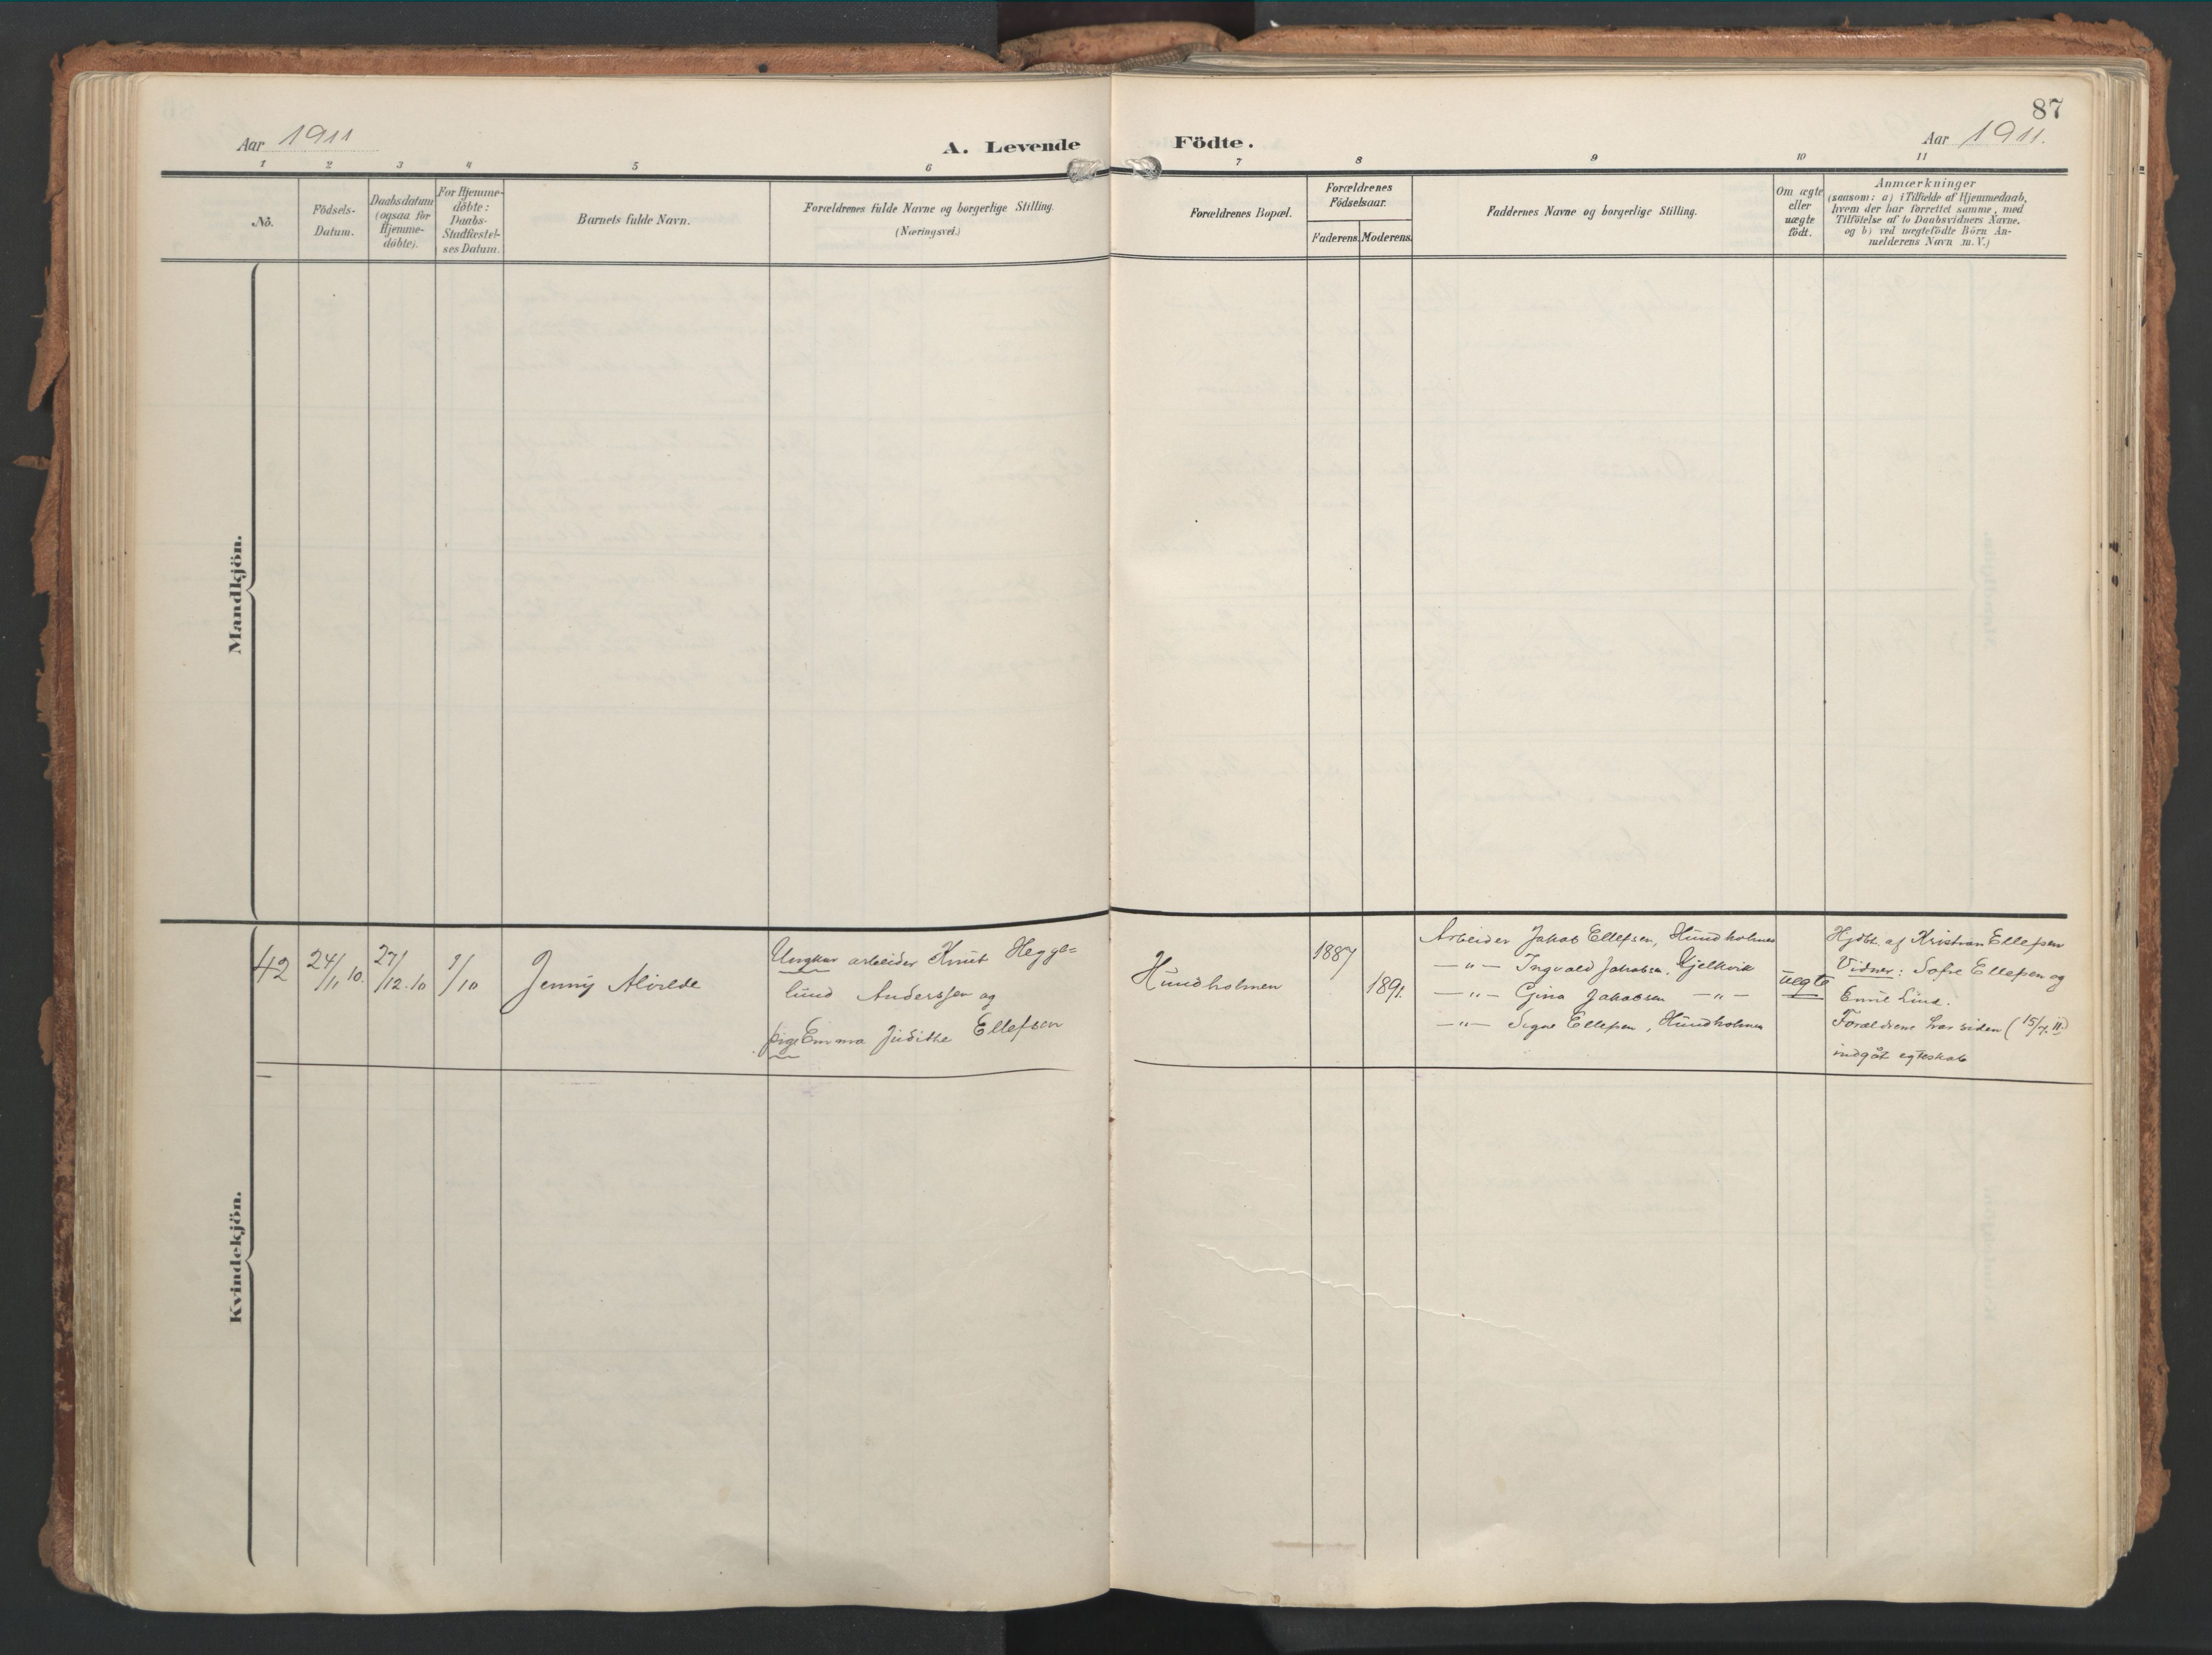 87
Aar 1911
A. Levende Födte.
Aar 1911.
1 2 3 4 5 6 7 8 9 10 11
No.
Födsels-
Datum.
Daabsdatum
(ogsaa for
Hjemme-
döbte).
For Hjemme-
döbte:
Daabs-
Stadfæstel-
ses Datum.
Barnets fulde Navn.
Forældrenes fulde Navne og borgerlige Stilling.
(Næringsvei.)
Forældrenes Bopæl.
Forældrenes
Födselsaar.
Faderens. Moderens.
Faddernes Navne og borgerlige Stilling.
Om ægte
eller
uægte
födt.
Anmærkninger
(saasom: a) i Tilfælde af Hjemmedaab,
hvem der har forrettet samme, med
Tilföielse af to Daabsvidners Navne,
og b) ved uægtefödte Börn An-
melderens Navn m. V.)
Mandkjön.
Kvindekjön.
42
24/11 10.
27/12.10
9/10
Jenny Alvilde
Ungkar arbeider Knut Hegge=
lund Anderssen og
pige Emma Judithe Ellefsen
Hundholmen
1887
1891.
Arbeider Jakob Ellefsen, Hundholmen
—"— Ingvald Jakobsen, Kjelkvik
—"— Gina Jakobsen —"—
—"— Signe Ellefsen, Hundholmen
uegte
Hjdbt. af Kristian Ellefsen
Vidner: Sofie Ellefsen og
Emil Lind.
Forældrene har siden (15/7.11)
indgåt egteskab